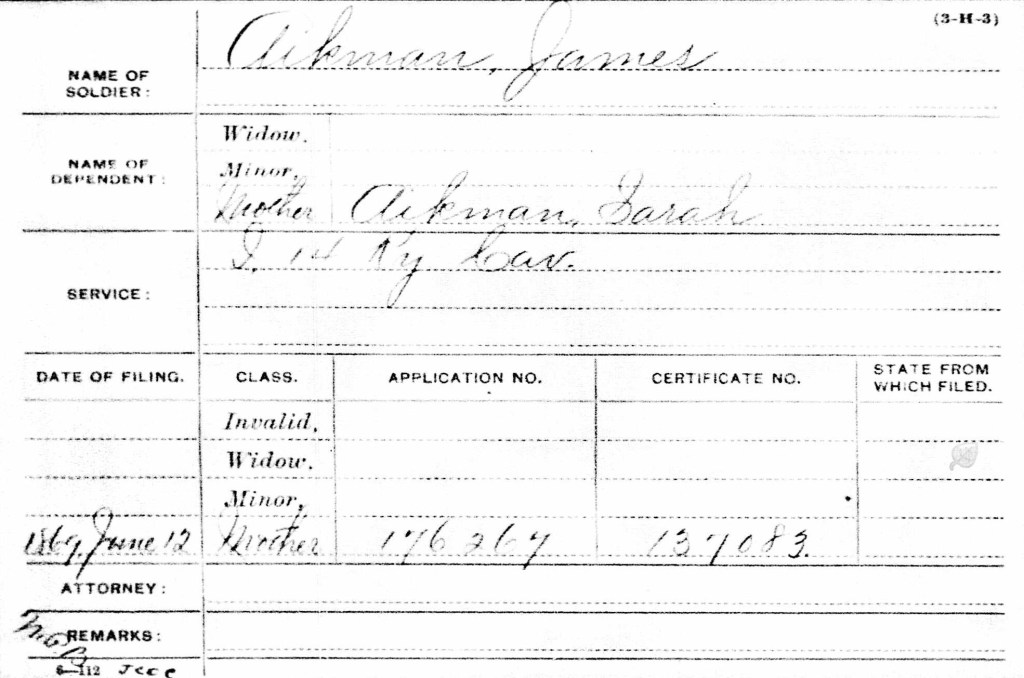 (3-H-3)
Aikman, James
NAME OF
SOLDIER:
Widow.
NAME OF
DEPENDENT:
Minor,
Mother Aikman, Sarah
I. 14 Ky Cav.
SERVICE:
DATE OF FILING. CLASS. APPLICATION NO. CERTIFICATE NO. STATE FROM WHICH FILED.
Invalid,
Widow.
Minor,
1869, June 12 Mother 176 267 137083.
ATTORNEY:
REMARKS:
6—112